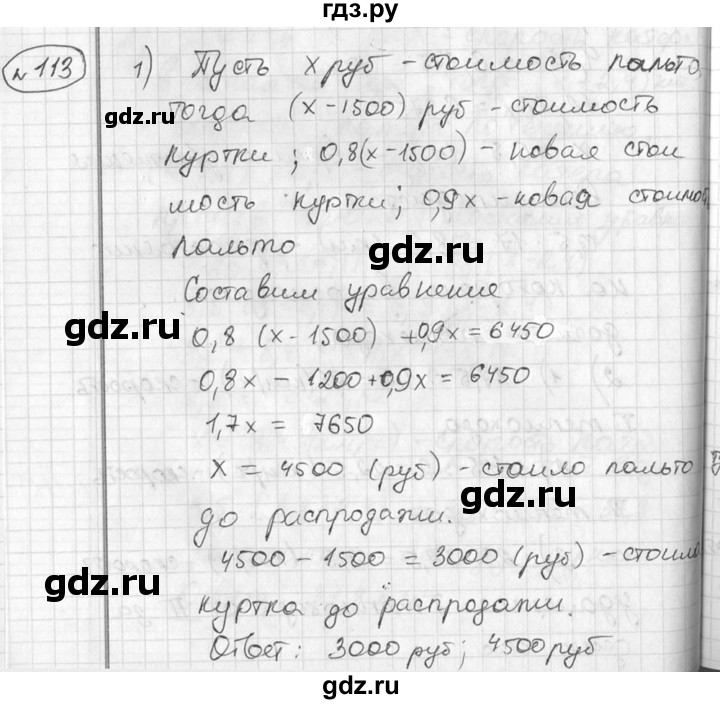 гдз.ру
№113 1) Пусть x руб - стоимость пальто,
gdz.ru
тогда (x-1500) руб - стоимость
куртки; 0,8(x-1500) - новая стои
мость куртки; 0,9x - новая стоимо
пальто
gdz.ru
Составим уравнение
gdz.ru
0,8 (x-1500) + 0,9x = 6450
0,8x - 1200 + 0,9x = 6450
1,7x = 7650
x = 4500 (руб) - стоило пальто
gdz.ru
до распродажи.
gdz.ru
4500 - 1500 = 3000 (руб) - стоила
куртка до распродажи.
Ответ: 3000 руб; 4500 руб
gdz.ru
гдз.ру